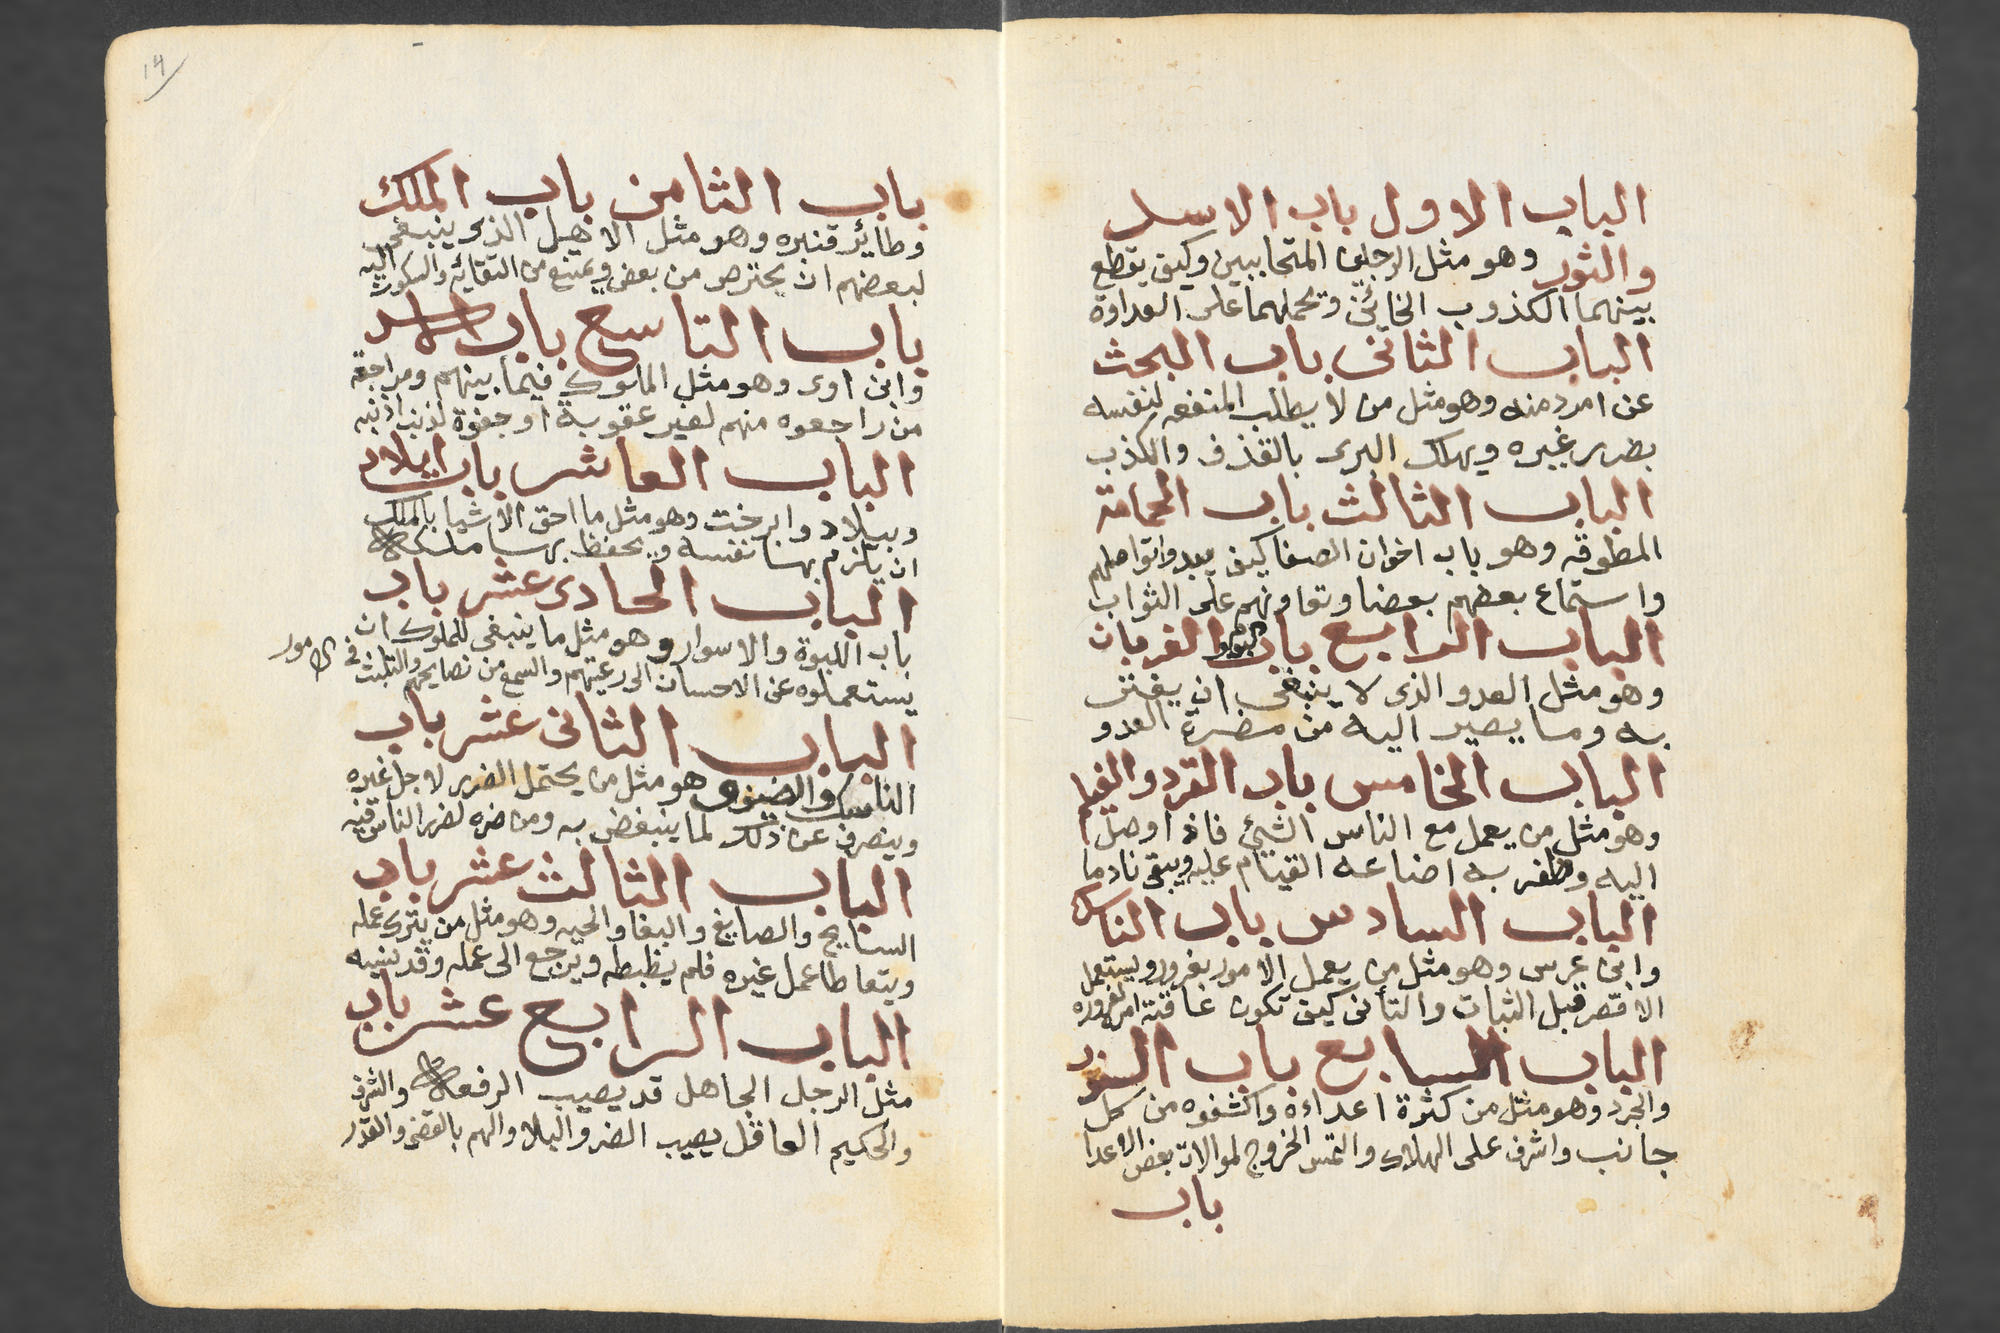 الباب الاول باب الاسد
والثور وهو مثل الرجلين المتحاببين وكيف يقطع
بينهما الكذوب الخائن ويحملهما على العداوة
الباب الثانى باب البحث
عن امر دمنه وهو مثل من لا يطلب المنفعه لنفسه
بضرر غيره ويهلك البرى بالقذف والكذب
الباب الثالث باب الحمامة
المطوقه وهو باب اخوان الصفا كيف يبدوا تواصلهم
واستماع بعضهم بعضا وتعاونهم على الثواب
الباب الرابع باب البوم والغربان
وهو مثل العدو الذى لا ينبغى ان يغتر
به وما يصير اليه من مضرة العدو
الباب الخامس باب القرد والغيلم
وهو مثل من يعمل مع الناس الشيئ فاذا وصل
اليه وظفر به اضاعه القيام عليه ويبقى نادما
الباب السادس باب الناسك
وابن عرس وهو مثل من يعمل الامور بغرور ويستعمل
الاقصر قبل الثبات والتأنى كيف تكون عاقبة امره
الباب السابع باب السنور
والجرد وهو مثل من كثرة اعداءه واكشفوه من كل
جانب واشرف على الهلاك والتمس الخروج لموالات بعض الاعدا
باب
١٤
باب الثامن باب الملك
وطائر قنبره وهو مثل الاهيل الذى ينبغى
لبعضهم ان يحترص من بعض ويمتنع من التقائه والسكوت اليه
باب التاسع باب الاسد
وابن اوى وهو مثل الملوك فيما بينهم ومراجعة
من راجعوه منهم لغير عقوبة او جفوة لذنب اذنبه
الباب العاشر باب ايلاد
وبيلاد وابرخت وهو مثل ما احق الاشيا بالملك
ان يلزم بها نفسه ويحفظ بها ملكه
الباب الحادى عشر باب
باب اللبوة والاسوار وهو مثل ما ينبغى للملوك ان
يستعملوه عن الاحسان الى رعيتهم والسمع من نصايحهم والتلبث فى الامور
الباب الثانى عشر باب
الناسك والضيف وهو مثل من يحتمل الضرر لاجل غيره
وينصرف عن ذلك لما ينبغض به ومن ضره لضرر الناس
الباب الثالث عشر باب
السايح والصايغ والببغا والحيه وهو مثل من يترك عمله
ويتعاطا عمل غيره فلم يظبطه ويرجع الى عمله وقد نسيه
الباب الرابع عشر باب
مثل الرجل الجاهل قد يصيب الرفعه والشرف
والحكيم العاقل يصيب الضر والبلا والهم بالقضى والقدر